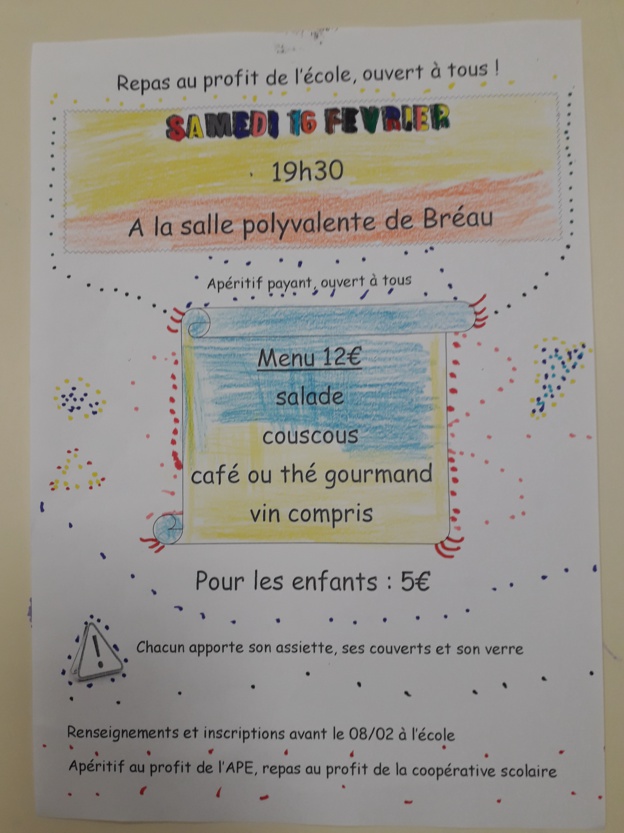 Repas au profit de l'école, ouvert à tous !
SAMEDI 16 FEVRIER
19h30
A la salle polyvalente de Bréau
Apéritif payant, ouvert à tous
Menu 12€
salade
couscous
café ou thé gourmand
vin compris
Pour les enfants : 5€
Chacun apporte son assiette, ses couverts et son verre
Renseignements et inscriptions avant le 08/02 à l'école
Apéritif au profit de l'APE, repas au profit de la coopérative scolaire